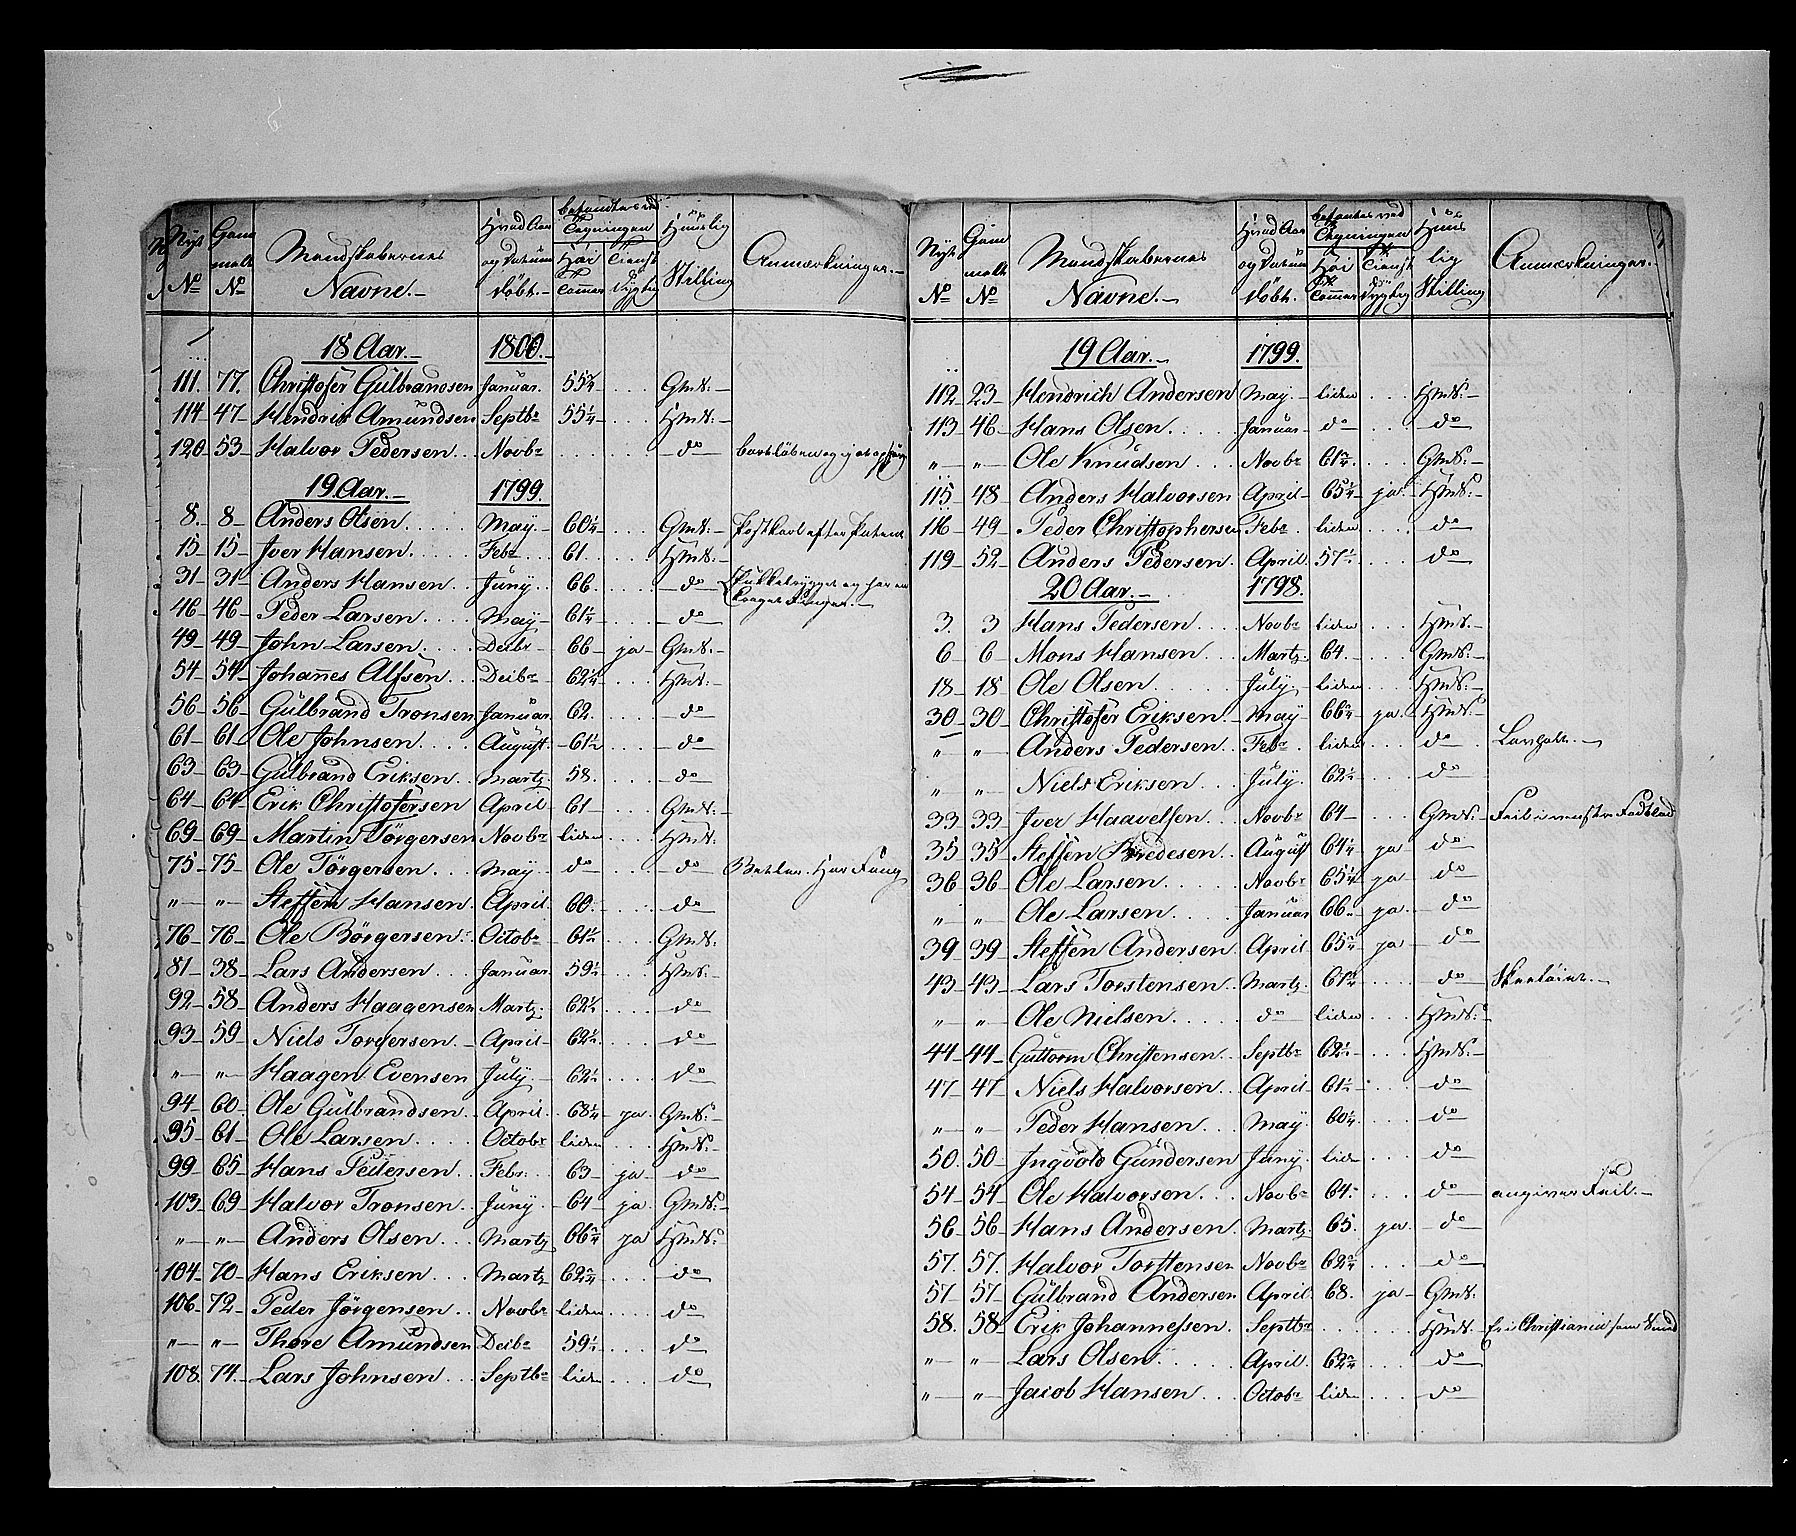 Nyt No | Gamelt No | Mandskabernes Navne.- | Hvad Aar og Datum Døbt.- | befandtes ved Tegningen Høi Tommer | Tienst Dygtig | Huuslig Stilling | Anmærkninger.-
18 Aar.- 1800.-
111. 77. Christofer Gülbrandsen Januar. 55¾ Gmd:-
114 47- Hendrik Amündsen Septbr 55¼ Hmd:-
120 53- Halvor Pedersen Novbr do
19 Aar.- 1799.
8. 8- Anders Olsen May.- 60¼ Gmd:-
15- 15- Iver Hansen Febr 61. Hmd:-
31- 31- Anders Hansen Juny. 66. do
46- 46- Peder Larsen May- 61¼ do
49- 49- John Larsen Decbr 66- ja- Gmd:-
54- 54- Johannes Alfsen Decbr 62¼ Hmd:-
56- 56- Gülbrand Tronsen Januar. 62. do
61- 61- Ole Johnsen August. 61½ do
63- 63- Gülbrand Eriksen Martz 58. do
64- 64- Erik Christofersen April 61- Gmd:-
69- 69- Martin Törgersen Novbr liden Hmd.
75- 75- Ole Törgersen May do do
" " Steffen Hansen April. 60. do
76- 76- Ole Börgersen Octobr 61½ Gmd:
81- 38- Lars Andersen Januar 59½ Hmd:-
92- 58- Anders Haagensen Martz. 62½ do
93- 59- Niels Torgersen April 62½ do
" " Haagen Evensen July.- 62½ do
94- 60- Ole Gülbrandsen April. 68¼ ja- Gmd:-
95- 61- Ole Larsen Octobr liden Hmd:-
99- 65- Hans Pedersen Febr. 63 ja- do
103- 69- Halvor Tronsen Juny. 64 ja Gmd:-
" " Anders Olsen Martz 66¾ ja Hmd:
104- 70- Hans Eriksen Martz 62¾ do
106- 72- Peder Jörgensen Novbr liden do
" " Thore Amündsen Decbr 59½ do
108. 74.- Lars Johnsen Septbr liden do
Nyt No | Gamelt No | Mandskabernes Navne.- | Hvad Aar og Datum Døbt. | befantes ved Tegningen Høi Tommer | Tienst dygtig | Huuslig Stilling | Anmærkninger.-
19 Aar.- 1799.
112- 23- Hendrich Andersen May- liden Hmd:-
113 46- Hans Olsen Januar- do do
" " Ole Knudsen Novbr 61¾ Gmd:-
115- 48- Anders Halvorsen April- 65¼ ja- Hmd:-
116- 49- Peder Christophersen Febr liden do
119- 52- Anders Pedersen April. 57½ do
20 Aar.- 1798.
3. 3 Hans Pedersen Novbr liden Hmd:-
6- 6- Mons Hansen Martz. 64. Gmd:-
18- 18- Ole Olsen July. liden Hmd:-
30- 30- Christofer Eriksen May- 66¾ ja- Hmd:-
" " Anders Pedersen Febr liden do
" " Niels Eriksen July. 62½ do
33- 33- Iver Haavelsen Novbr 64- Gmd:- Feil i venstre Fodblad
35- 35- Steffen Bredesen August 64¼ ja do
36- 36- Ole Larsen Novbr 65¼ ja- do
" " Ole Larsen Januar 66- ja- do
39- 39- Steffen Andersen April 65¾ ja do
43- 43- Lars Torstensen Martz. 61¾ do
" " Ole Nielsen do liden Hmd:-
44- 44- Guttorm Christensen Septbr 62½ Hmd:-
47- 47- Niels Halvorsen April- 61½ do
" " Peder Hansen May. 60¼ do
50. 50- Ingvold Gündersen Juny. lid do
54- 54- Ole Halvorsen Novbr 64- do angiver Feil.-
56- 56- Hans Andersen Martz 65. ja- do
57. 57. Halvor Torstensen Novbr 62¾ do
57- 57- Gülbrand Andersen April 68. ja- Gmd:
58. 58- Erik Johannessen Septbr Hmd.- Er i Christiania som Smed
" " Lars Olsen April. 62¾ do
" " Jacob Hansen Octobr liden do